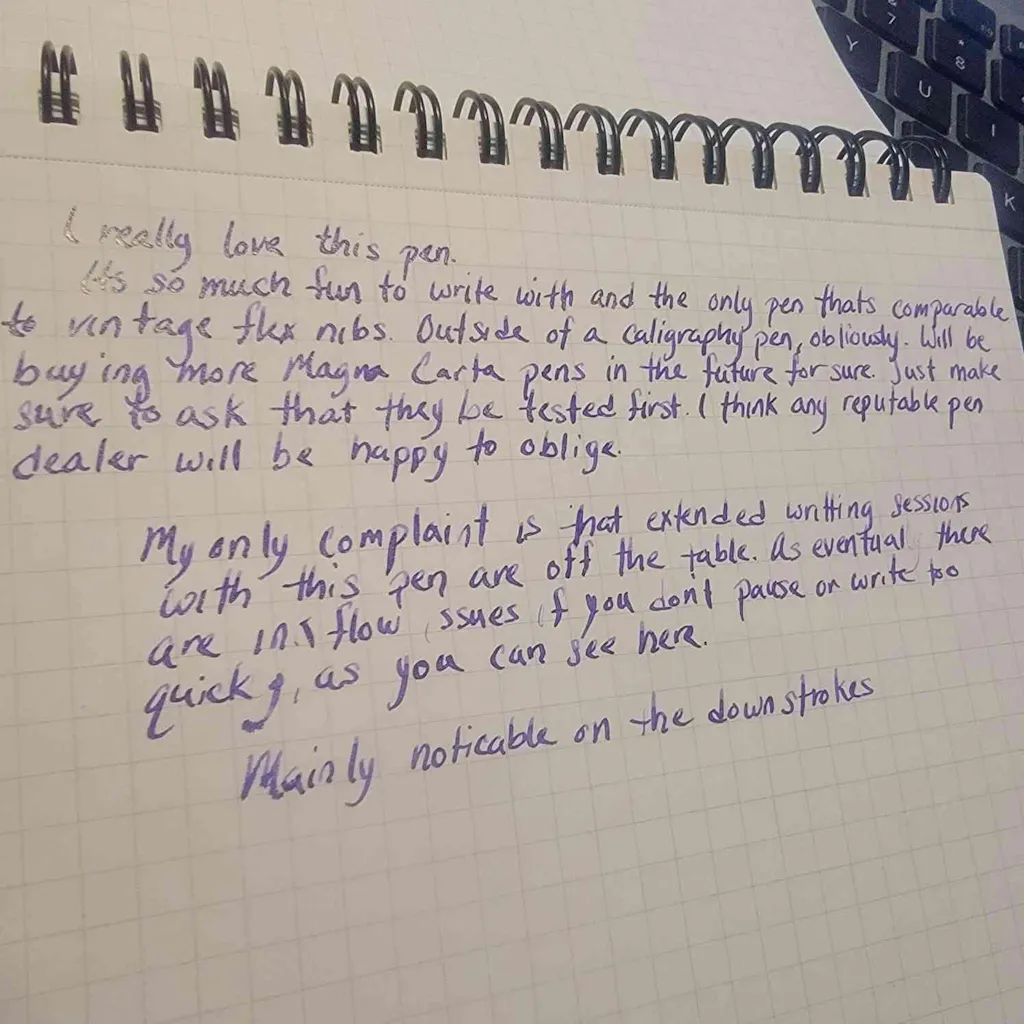 I really love this pen.
Its so much fun to write with and the only pen thats comparable
to vintage flex nibs. Outside of a caligraphy pen, obliously. Will be
buying more Magna Carta pens in the future for sure. Just make
sure to ask that they be tested first. I think any reputable pen
dealer will be happy to oblige.
My only complaint is that extended writting sessions
with this pen are off the table. As eventual there
are ink flow issues if you don't pause or write too
quickly, as you can see here.
Mainly noticable on the downstrokes
7
8
Y
U
I
K